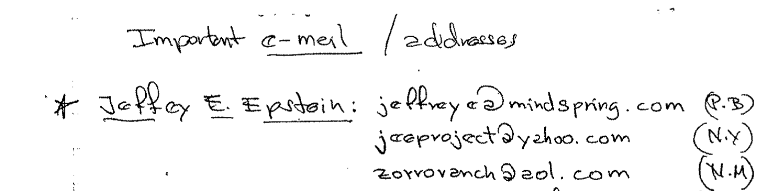 Important e-mail / addresses
* Jeffrey E. Epstein: jeffreye@mindspring.com (P.B)
jeeproject@yahoo.com (N.Y)
zorroranch@aol.com (N.M)